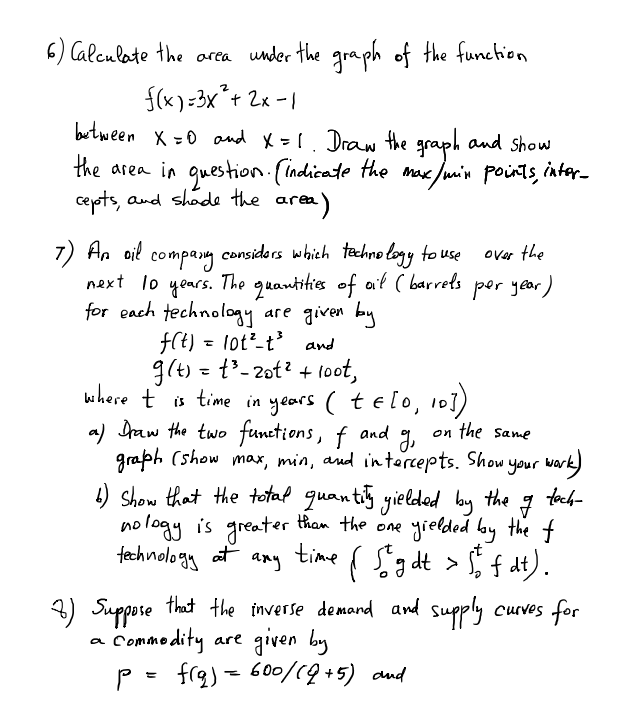 6) Calculate the area under the graph of the function
f(x)=3x²+ 2x -1
between x=0 and x=1. Draw the graph and show
the area in question. (indicate the max/min points, inter-
cepts, and shade the area)
7) An oil company considers which technology to use over the
next 10 years. The quantities of oil (barrels per year)
for each technology are given by
f(t) = 10t²-t³ and
g(t) = t³-20t² + 100t,
where t is time in years ( t ∈ [0, 10])
a) Draw the two functions, f and g, on the same
graph (show max, min, and intercepts. Show your work)
b) Show that the total quantity yielded by the g tech-
nology is greater than the one yielded by the f
technology at any time ( ∫₀ᵗ g dt > ∫₀ᵗ f dt).
8) Suppose that the inverse demand and supply curves for
a commodity are given by
p = f(q) = 600/(q+5) and